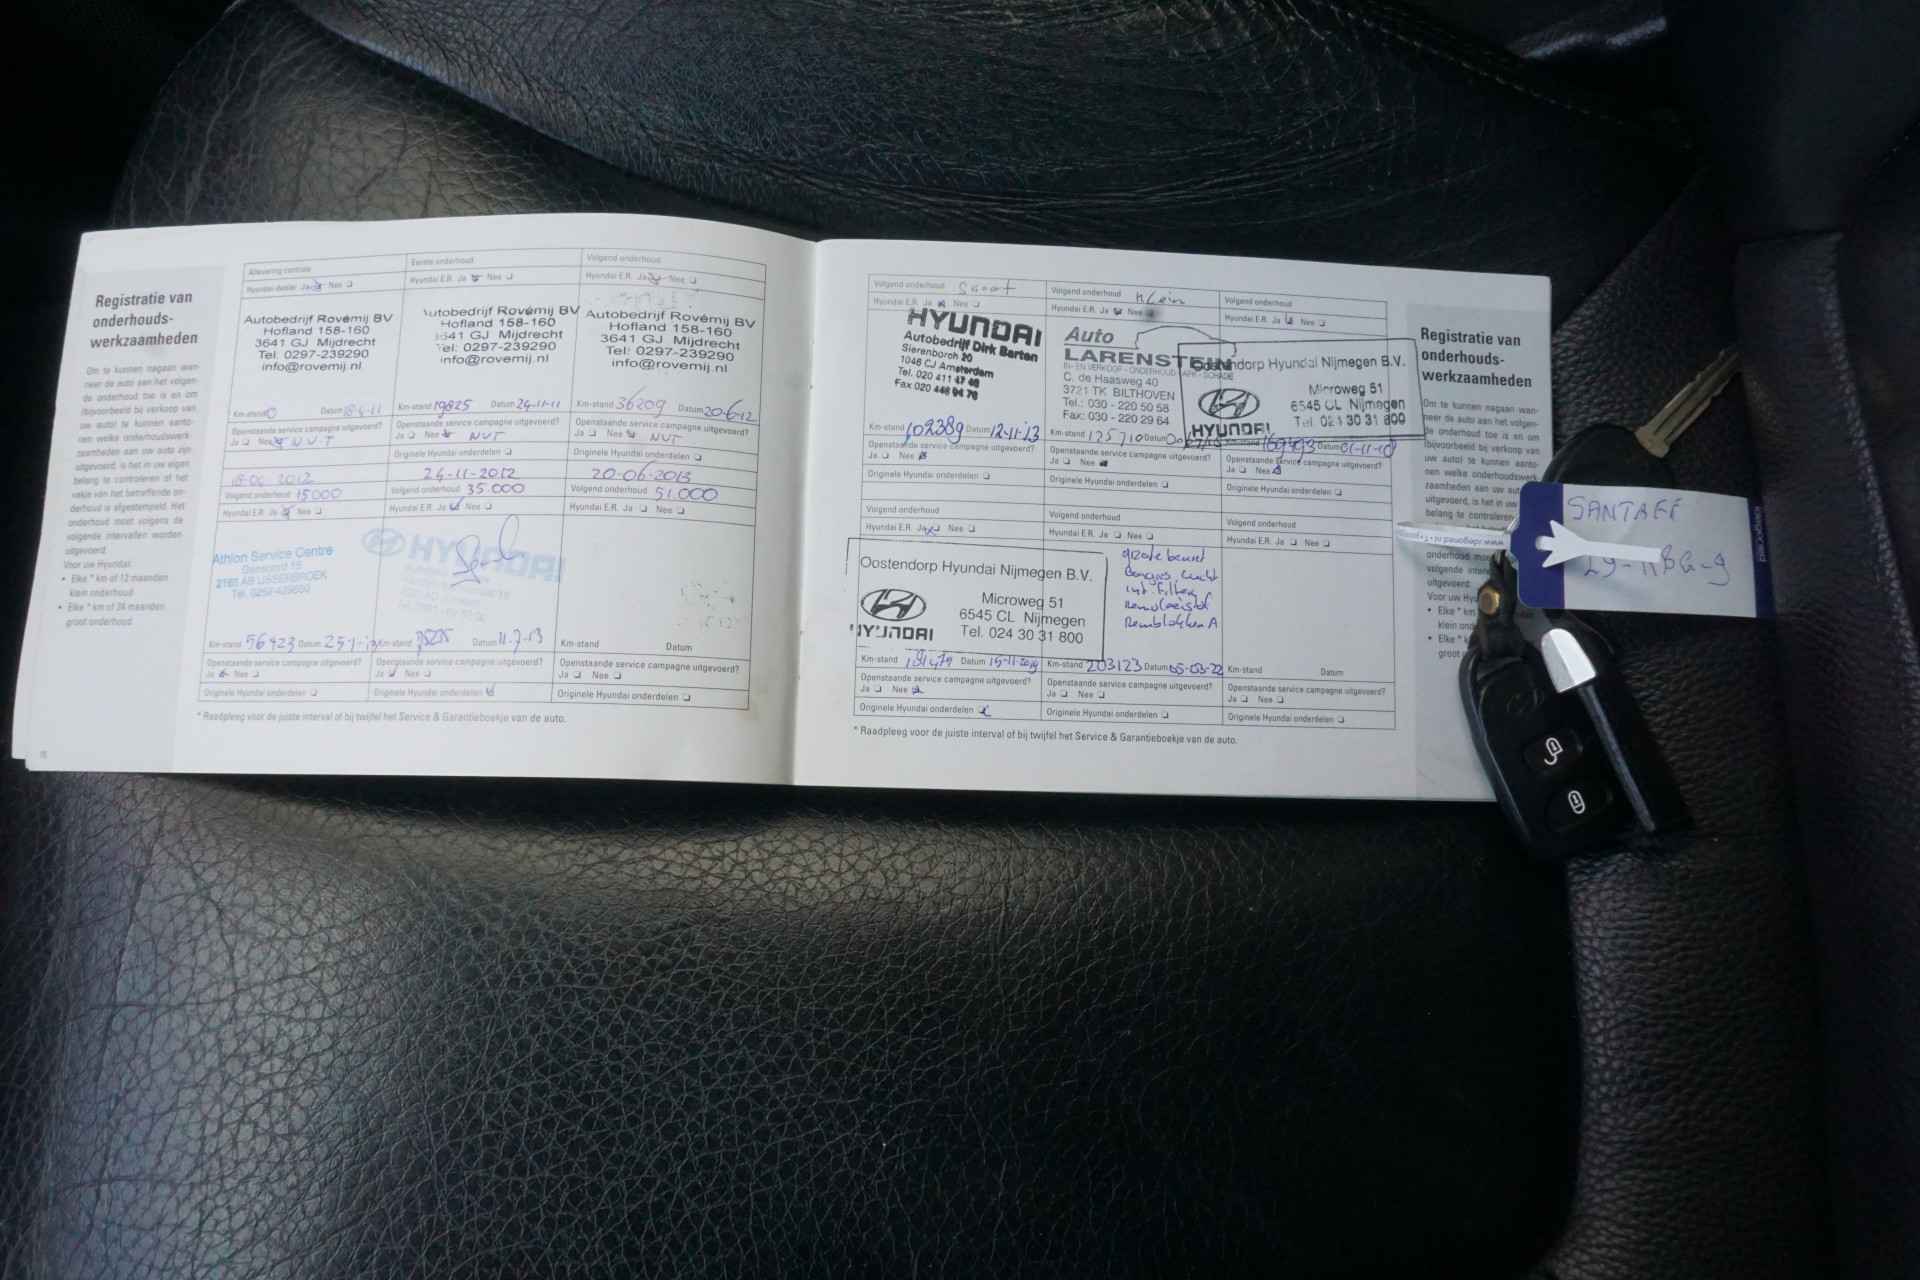 Registratie van
onderhouds-
werkzaamheden
Om te kunnen nagaan wan-
neer de auto aan het volgen-
de onderhoud toe is en om
(bijvoorbeeld bij verkoop van
uw auto) te kunnen aanto-
nen welke onderhoudswerk-
zaamheden aan uw auto zijn
uitgevoerd, is het in uw eigen
belang te controleren of het
vakje van het betreffende on-
derhoud is afgestempeld. Het
onderhoud moet volgens de
volgende intervallen worden
uitgevoerd:
Voor uw Hyundai:
• Elke * km of 12 maanden
klein onderhoud
• Elke * km of 24 maanden
groot onderhoud
Aflevering controle
Hyundai dealer Ja Nee
Autobedrijf Rovémij BV
Hofland 158-160
3641 GJ Mijdrecht
Tel. 0297-239290
info@rovemij.nl
Km-stand 0 Datum 18-4-11
Openstaande service campagne uitgevoerd?
Ja Nee NVT
2012
Eerste onderhoud
Hyundai E.R. Ja Nee
Autobedrijf Rovémij BV
Hofland 158-160
3641 GJ Mijdrecht
Tel: 0297-239290
info@rovemij.nl
Km-stand 19825 Datum 24-11-11
Openstaande service campagne uitgevoerd?
Ja Nee NVT
Originele Hyundai onderdelen
24-11-2012
Volgend onderhoud
Hyundai E.R. Ja Nee
Autobedrijf Rovémij BV
Hofland 158-160
3641 GJ Mijdrecht
Tel: 0297-239290
info@rovemij.nl
Km-stand 36209 Datum 20-6-12
Openstaande service campagne uitgevoerd?
Ja Nee NVT
Originele Hyundai onderdelen
20-06-2013
Volgend onderhoud 15000
Hyundai E.R. Ja Nee
Athlon Service Centre
Tel. 0252-429650
Km-stand 56423 Datum 25-1-13
Openstaande service campagne uitgevoerd?
Ja Nee
Originele Hyundai onderdelen
Volgend onderhoud 35.000
Hyundai E.R. Ja Nee
HYUNDAI
Km-stand Datum 11-7-13
Openstaande service campagne uitgevoerd?
Ja Nee
Originele Hyundai onderdelen
Volgend onderhoud 51.000
Hyundai E.R. Ja Nee
Km-stand Datum
Openstaande service campagne uitgevoerd?
Ja Nee
Originele Hyundai onderdelen
* Raadpleeg voor de juiste interval of bij twijfel het Service & Garantieboekje van de auto.
Volgend onderhoud
Hyundai E.R. Ja Nee
HYUNDAI
Autobedrijf Dirk Barten
Sierenborch 20
1046 CJ Amsterdam
Tel. 020 411 47 46
Fax 020 448 94 76
Km-stand 102389 Datum 12-11-13
Openstaande service campagne uitgevoerd?
Ja Nee
Originele Hyundai onderdelen
Volgend onderhoud Klein
Hyundai E.R. Ja Nee
Auto
LARENSTEIN
IN- EN VERKOOP - ONDERHOUD - APK - SCHADE
C. de Haasweg 40
3721 TK BILTHOVEN
Tel.: 030 - 220 50 58
Fax: 030 - 220 29 64
Km-stand 125710 Datum
Openstaande service campagne uitgevoerd?
Ja Nee
Originele Hyundai onderdelen
Volgend onderhoud
Hyundai E.R. Ja Nee
Oostendorp Hyundai Nijmegen B.V.
Microweg 51
6545 CL Nijmegen
Tel. 024 30 31 800
HYUNDAI
Datum 01-11-18
Openstaande service campagne uitgevoerd?
Ja Nee
Originele Hyundai onderdelen
Volgend onderhoud
Hyundai E.R. Ja Nee
Oostendorp Hyundai Nijmegen B.V.
Microweg 51
6545 CL Nijmegen
Tel. 024 30 31 800
HYUNDAI
Km-stand 191479 Datum 15-11-2019
Openstaande service campagne uitgevoerd?
Ja Nee
Originele Hyundai onderdelen
Volgend onderhoud
Hyundai E.R. Ja Nee
grote beurt
int. filter
Remvloeistof
Remblokken A
Km-stand 203123 Datum 05-03-22
Openstaande service campagne uitgevoerd?
Ja Nee
Originele Hyundai onderdelen
Volgend onderhoud
Hyundai E.R. Ja Nee
Km-stand Datum
Openstaande service campagne uitgevoerd?
Ja Nee
Originele Hyundai onderdelen
* Raadpleeg voor de juiste interval of bij twijfel het Service & Garantieboekje van de auto.
Registratie van
onderhouds-
werkzaamheden
Om te kunnen nagaan wan-
neer de auto aan het volgen-
de onderhoud toe is en om
(bijvoorbeeld bij verkoop van
uw auto) te kunnen aanto-
nen welke onderhoudswerk-
zaamheden aan uw
uitgevoerd, is het in
belang te controleren
onderhoud
volgende
uitgevoerd:
Voor uw
• Elke * km
klein
• Elke *
groot
SANTAFE
29-KBG-9